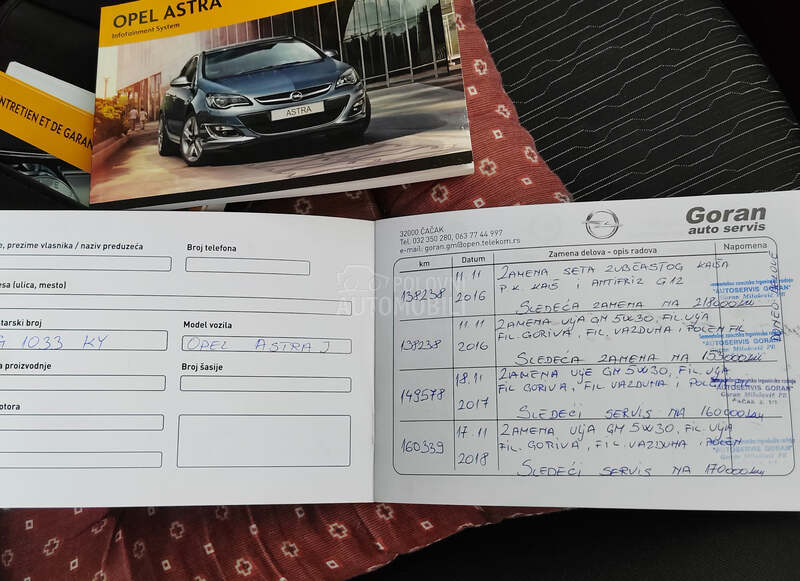 OPEL ASTRA
Infotainment System
ASTRA
NTRETIEN ET DE GARAN
e, prezime vlasnika / naziv preduzeća
Broj telefona
esa (ulica, mesto)
tarski broj
Model vozila
G 1033 KY
OPEL ASTRA J
a proizvodnje
Broj šasije
otora
POLOVNI
AUTOMOBILI
32000 ČAČAK
Tel. 032 350 280, 063 77 44 997
e-mail: goran.gm@open.telekom.rs
Goran
auto servis
km
Datum
Zamena delova - opis radova
Napomena
138238
11.11
2016
ZAMENA SETA ZUBČASTOG KAIŠA
P.K. KAIŠ I ANTIFRIZ G12
SLEDEĆA ZAMENA NA 218000km
"AUTOSERVIS GORAN"
Goran Milošević PR
138238
11.11
2016
ZAMENA ULJA GM 5W30, FIL. ULJA
FIL. GORIVA, FIL. VAZDUHA I POLEN FIL
SLEDEĆA ZAMENA NA 153000km
"AUTOSERVIS GORAN"
Goran Milošević PR
149578
18.11
2017
ZAMENA ULJE GM 5W30, FIL. ULJA
FIL GORIVA, FIL VAZDUHA I POLEN
SLEDEĆI SERVIS NA 160000km
"AUTOSERVIS GORAN"
Goran Milošević PR
160339
17.11
2018
ZAMENA ULJA GM 5W30, FIL. ULJA
FIL. GORIVA, FIL. VAZDUHA I POLEN
SLEDEĆI SERVIS NA 170000km
"AUTOSERVIS GORAN"
Goran Milošević PR